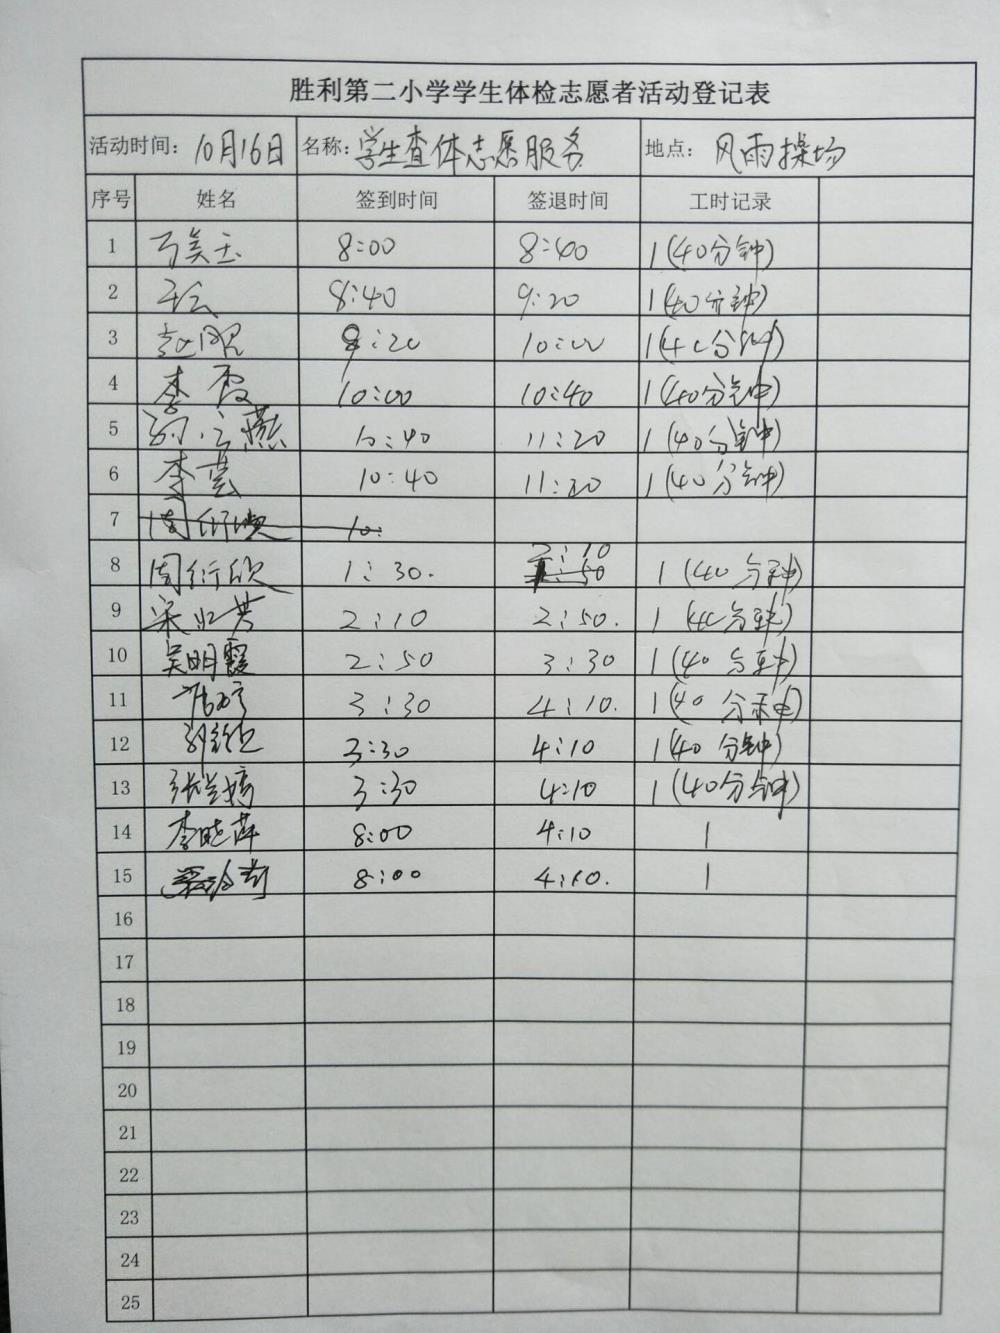 胜利第二小学学生体检志愿者活动登记表
活动时间: 10月16日 名称: 学生查体志愿服务 地点: 风雨操场
序号 姓名 签到时间 签退时间 工时记录
1 8:00 8:40 1(40分钟)
2 8:40 9:20 1(40分钟)
3 9:20 10:00 1(40分钟)
4 李霞 10:00 10:40 1(40分钟)
5 10:40 11:20 1(40分钟)
6 李芸 10:40 11:20 1(40分钟)
7 10:
8 周衍欣 1:30. 2:10 1:50 1(40分钟)
9 2:10 2:50. 1(40分钟)
10 吴明霞 2:50 3:30 1(40分钟)
11 3:30 4:10. 1(40分钟)
12 3:30 4:10 1(40分钟)
13 张兰婷 3:30 4:10 1(40分钟)
14 李晓萍 8:00 4:10 1
15 8:00 4:10. 1
16
17
18
19
20
21
22
23
24
25